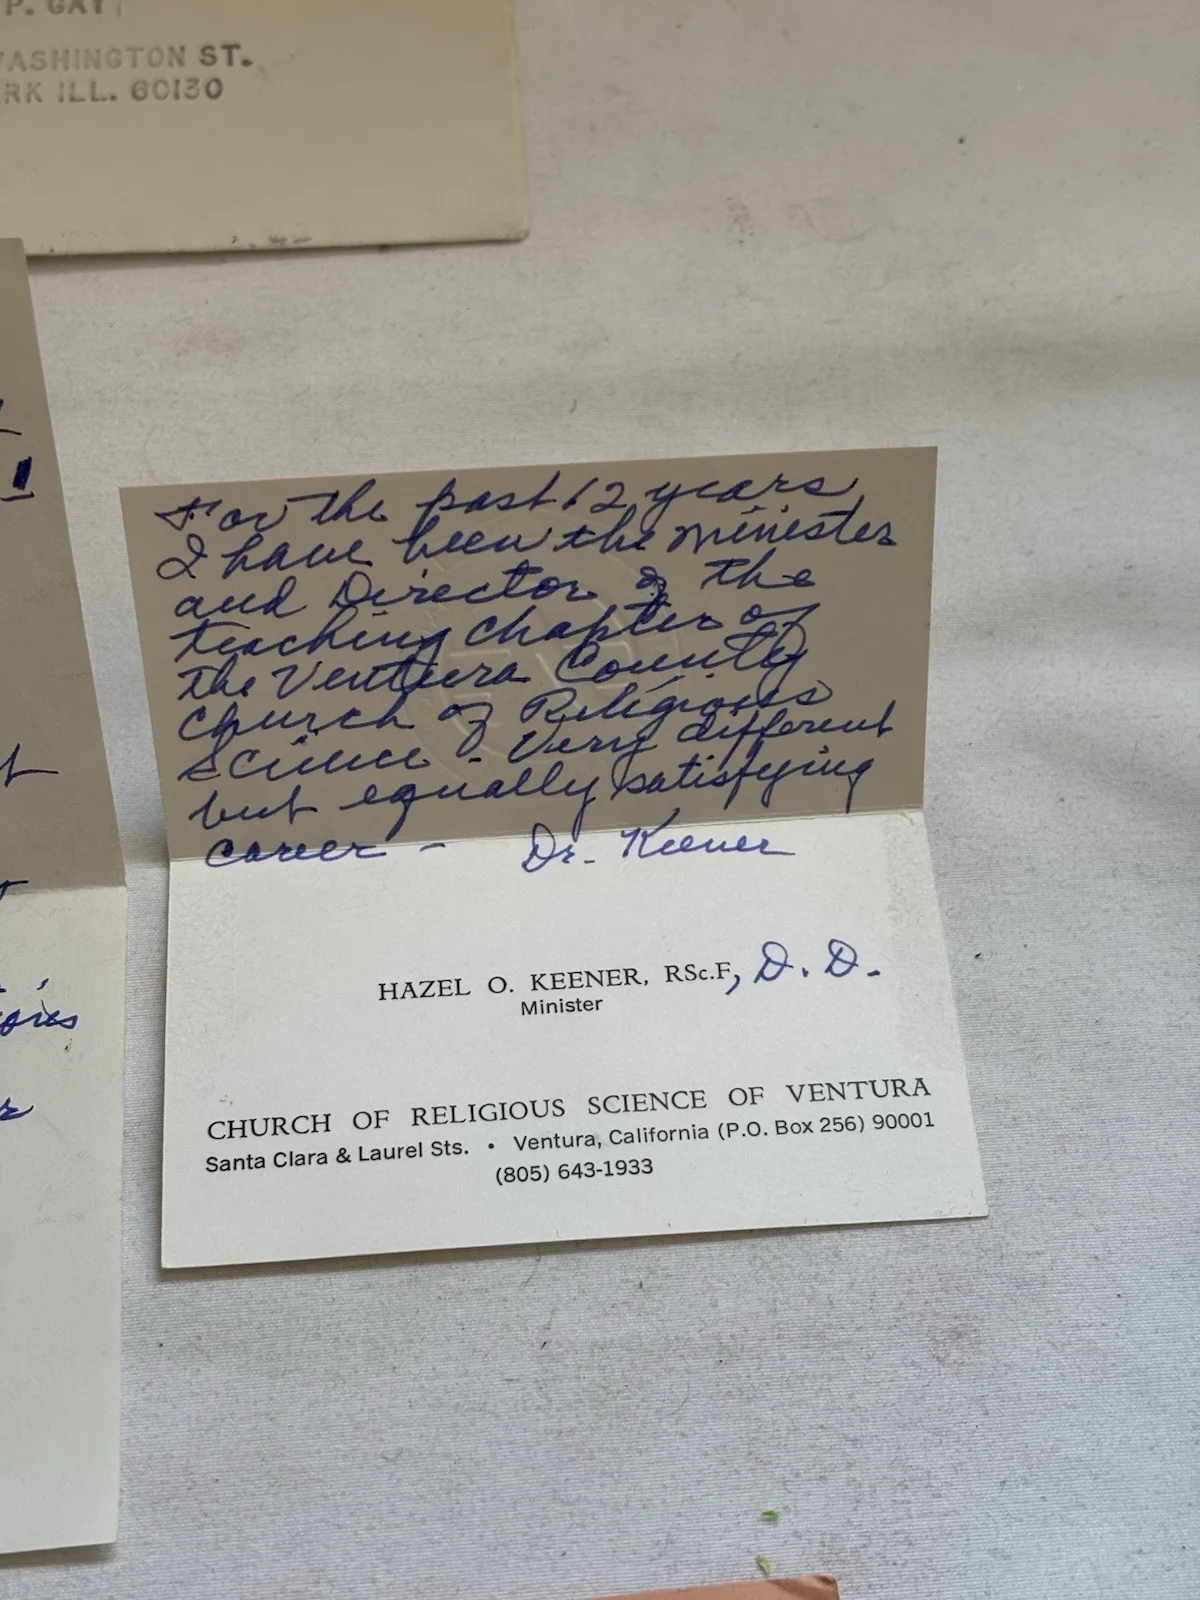 P. GAY
WASHINGTON ST.
RK ILL. 60130
For the past 12 years
I have been the minister
and Director of the
teaching chapter of
the Ventura County
Church of Religious
Science - Very different
but equally satisfying
career - Dr. Keener
HAZEL O. KEENER, RSc.F, D. D.
Minister
CHURCH OF RELIGIOUS SCIENCE OF VENTURA
Santa Clara & Laurel Sts. • Ventura, California (P.O. Box 256) 90001
(805) 643-1933